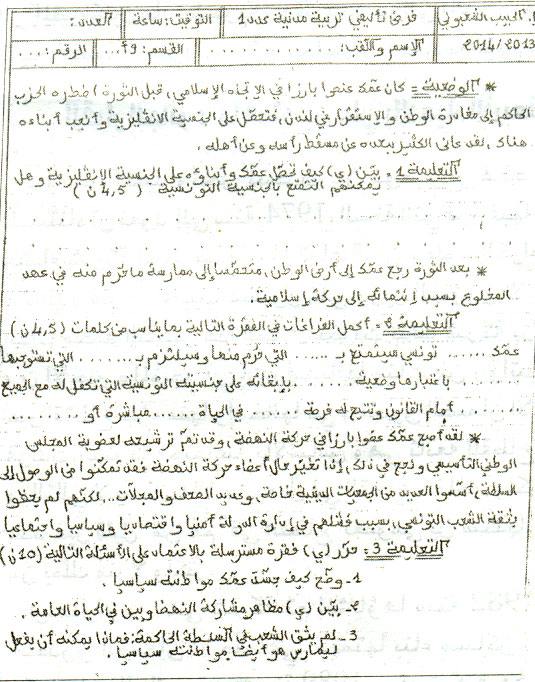 أ. الحبيب الشعبوني | فرض تأليفي تربية مدنية عدد 1 | التوقيت: ساعة | العدد:
2014/2013 | الإسم واللقب: .......... | القسم: 9أ... | الرقم: ...
* الوضعية = كان عمّك عضوا بارزا في الإتجاه الإسلامي، قبل الثورة، اضطره الحزب
الحاكم إلى مغادرة الوطن والإستقرار في لندن، فتحصّل على الجنسية الانقليزية وأنجب أبناءه
هناك، لقد عانى الكثير ببعده عن مسقط رأسه وعن أهله.
التعليمة 1 = بيّن (ي) كيف تحصّل عمّك وأبناؤه على الجنسية الإنقليزية وهل
يمكنهم التمتع بالجنسية التونسية (4,5 ن)
* بعد الثورة رجع عمّك إلى أرض الوطن، متحمّسا إلى ممارسة ما حُرم منه في عهد
المخلوع بسبب إنتمائه إلى حركة إسلامية.
التعليمة 2 = أكمل الفراغات في الفقرة التالية بما يناسب من كلمات (4,5 ن)
عمّك ...... تونسي سيتمتع بـ ...... التي حُرم منها وسيلتزم بـ ........ التي تستوجبها
........ باعتبارها وضعية ....... بإبقائه على جنسيته التونسية التي تكفل له مع الجميع
....... أمام القانون وتتيح له فرصة ....... في الحياة ...... مباشرة أو ........
* لقد أصبح عمّك عضوا بارزا في حركة النهضة، وقد تمّ ترشيحه لعضوية المجلس
الوطني التأسيسي ونجح في ذلك، إذا تغيّر حال أعضاء حركة النهضة فقد تمكّنوا من الوصول إلى
السلطة، أسّسوا العديد من الجمعيات الدينية خاصة، وعديد الصحف والمجلات.. لكنّهم لم يحظوا
بثقة الشعب التونسي، بسبب فشلهم في إدارة الدولة أمنيا واقتصاديا وسياسيا واجتماعيا
التعليمة 3 = حرّر (ي) فقرة مسترسلة بالاعتماد على الأسئلة التالية (10 ن)
1 - وضّح كيف جسّد عمّك مواطنته سياسيا.
2 - بيّن (ي) مظاهر مشاركة النهضاويين في الحياة العامة.
3 - لم يثق الشعب في السلطة الحاكمة: فماذا يمكنه أن يفعل
ليمارس هو أيضا مواطنته سياسيا.